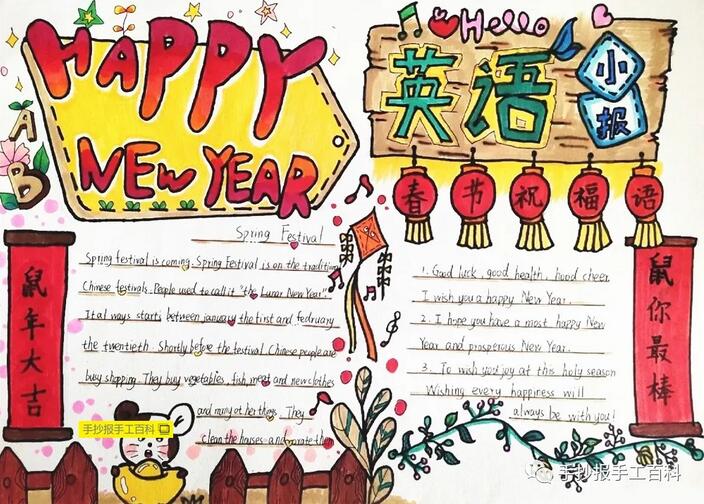 HAPPY
NEW YEAR
A
B
Hello
英语
小
报
春节祝福语
鼠年大吉
鼠你最棒
Spring Festival
Spring festival is coming. Spring Festival is on the traditional
Chinese festivals. People used to call it "the Lunar New Year".
It al ways starts between january the first and february
the twentieth. Shortly before the festival Chinese people are
busy shopping. They buy vegetables, fish, meat and new clothes
and many other things. They
clean the houses and
them
1. Good luck, good health, hood cheer
I wish you a happy New Year.
2. I hope you have a most happy New
Year and prosperous New Year.
3. To wish you joy at this holy season
Wishing every happiness will
always be with you!
手抄报手工百科
手抄报手工百科